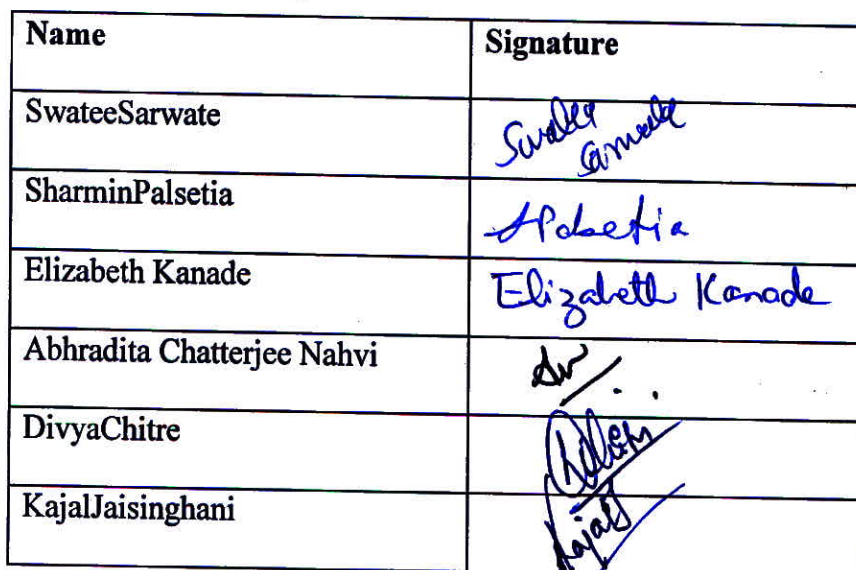 Name Signature
SwateeSarwate Swatee Sarwate
SharminPalsetia SPalsetia
Elizabeth Kanade Elizabeth Kanade
Abhradita Chatterjee Nahvi
DivyaChitre
KajalJaisinghani Kajal